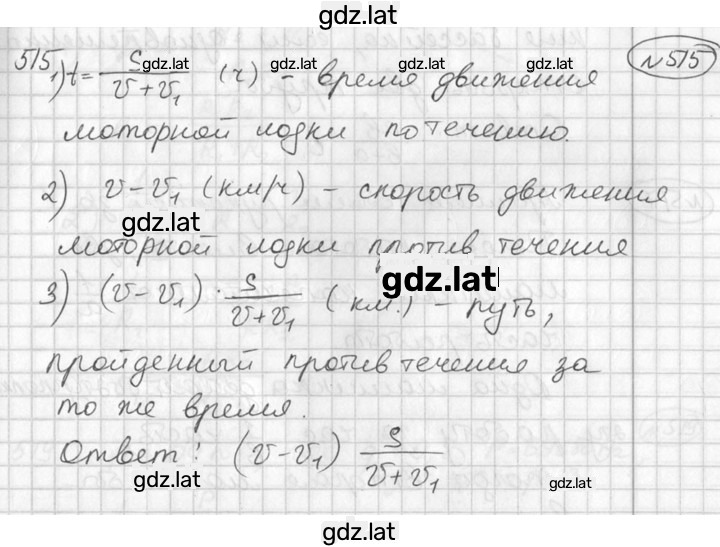 gdz.lat
515 № 515
1) t = S / (v + v₁) (ч) - время движения
gdz.lat gdz.lat gdz.lat
моторной лодки по течению.
2) v - v₁ (км/ч) - скорость движения
gdz.lat
моторной лодки против течения
gdz.lat
3) (v - v₁) · S / (v + v₁) (км.) - путь,
пройденный против течения за
то же время.
gdz.lat
Ответ: (v - v₁) S / (v + v₁)
gdz.lat gdz.lat
gdz.lat